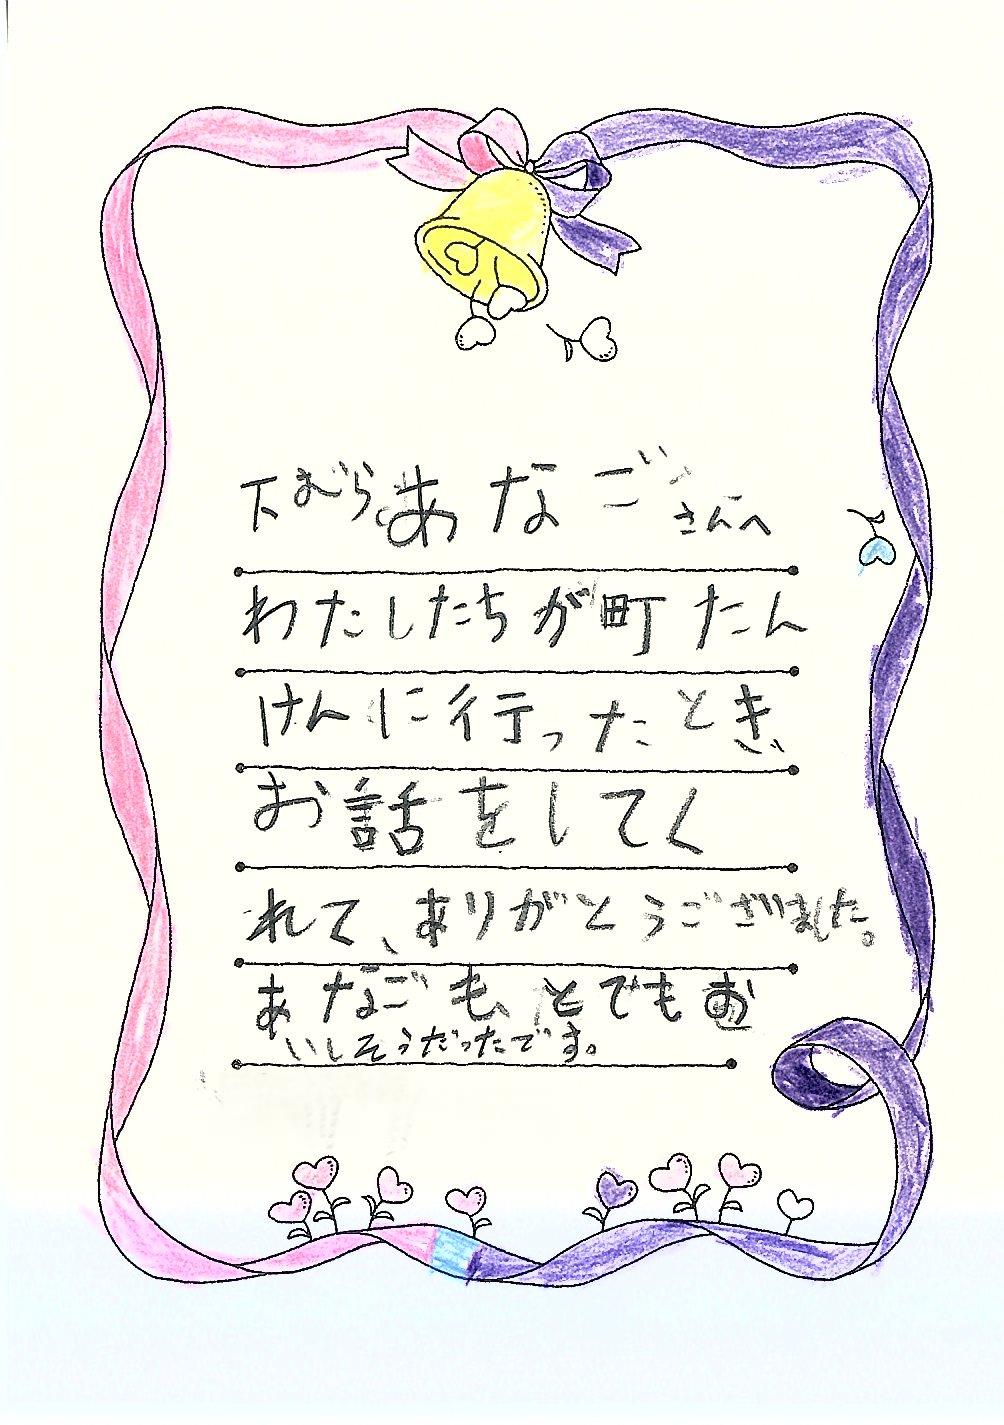 下むらあなごさんへ
わたしたちが町たん
けんに行ったとき
お話をしてく
れて、ありがとうございました。
あなごも、とてもお
いしそうだったです。